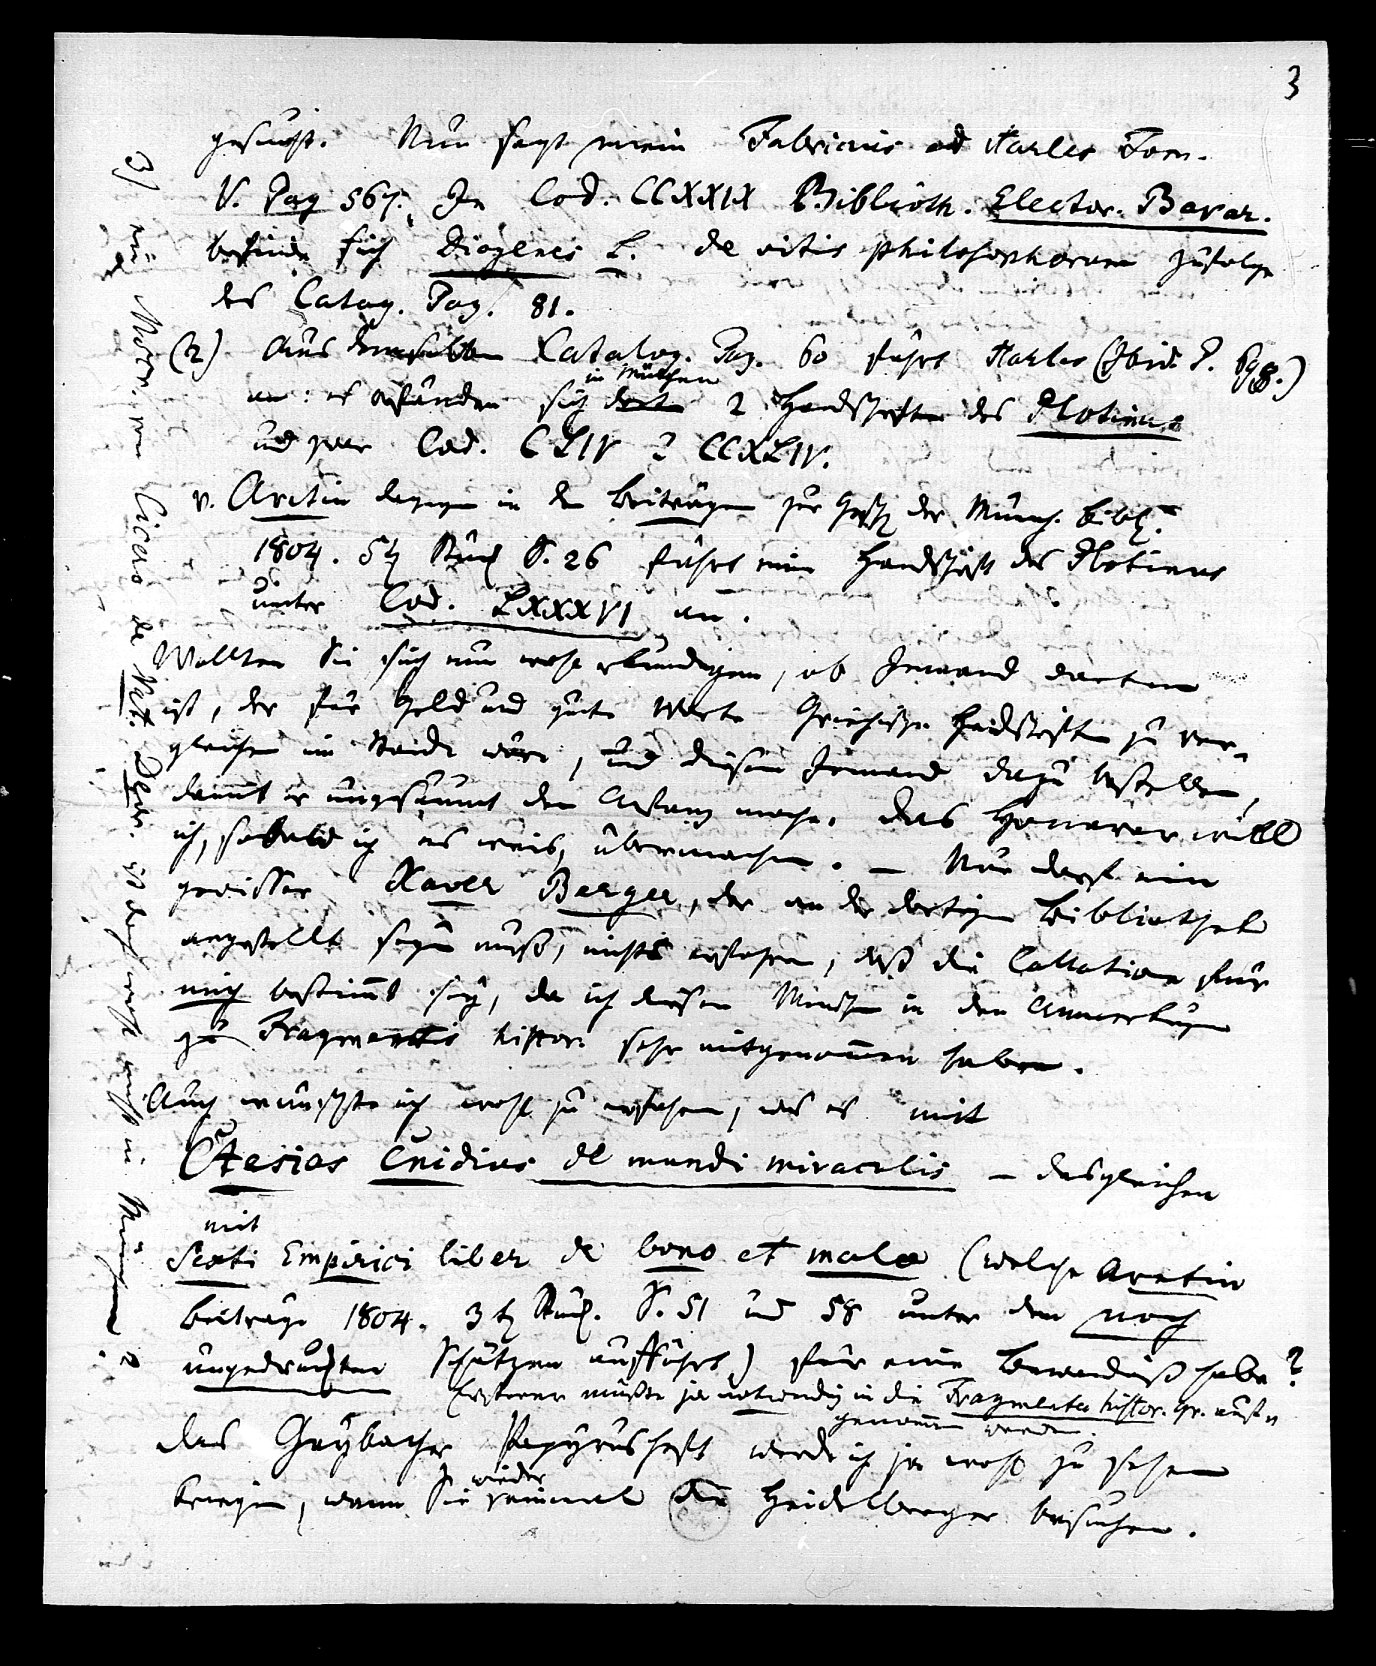 3
gesucht. Nun sagt mein Fabricius ed Harles Tom.
V. Pag 567. In Cod. CCXXIX Biblioth. Elector. Bavar.
befinde sich Diogenes L. de vitis philosophorum zufolge
des Catag. Pag. 81.
(2) Aus demselben Catalog. Pag. 60 führt Harles (Ibid. P.
an: es befänden sich in München 2 Handschriften des Plotinus
und zwar Cod. CLIV & CCXLIV.
v. Aretin dagegen in den Beiträgen zur Gesch der Münch. Bibl.
1804. 5t Stück S. 26 führt eine Handschrift des Plotinus
unter Cod. LXXXVI an.
Wollten Sie sich nun wohl erkundigen, ob Jemand dorten
ist, der für Geld und gute Worte Griechische Handschriften zu ver-
gleichen im Stande wäre, und diesen Jemand dazu bestellen,
damit er ungesäumt den Anfang mache. Das Honorar will
ich, sobald ich es weis, übermachen. — Nur darf ein
gewisser Xaver Berger, der an der dortigen Bibliothek
angestellt seyn muß, nichts erfahren, daß die Collation für
mich bestimt sey, da ich diesen Menschen in den Anmerkungen
zu Fragmentis histor. sehr mitgenommen habe.
Auch wünschte ich wohl zu erfahren, was es mit
Ctesias Cnidius de mundi miraculis — desgleichen
mit
Sexti Empirici liber de bono et malo (welche Aretin
Beiträge 1804. 3t Stück. S. 51 und 58 unter den noch
ungedruckten Schätzen aufführt) für eine Bewandniß habe?
Ersterer müßte ja notwendig in die Fragmenta histor. gr.
genomen werden.
Das Papyrusheft werde ich ja wohl zu sehen
kriegen, wenn Sie wieder einmal die Heidelberger besuchen.
3) ein von Cicero de Nat. Deor. ist doch wohl nicht in München?